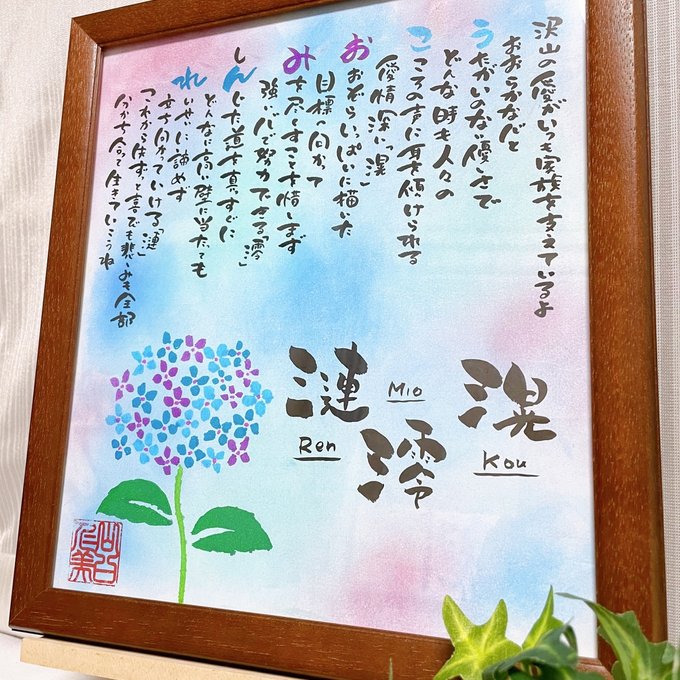 沢山の愛がいつも家族を支えているよ
おおらかな心と
うたがいのない優しさで
どんな時も人々の
こころの声に耳を傾けられる
愛情深い「滉」
おおぞらいっぱいに描いた
目標へ向かって
みを尽くすことを惜しまず
強い心で努力できる「澪」
しんじた道を真すぐに
どんなに高い壁に当たっても
れいせいに諦めず
立ち向かっていける「漣」
これからはずっと喜びも悲しみも全部
分かち合って生きていこうね
滉
Kou
澪
Mio
漣
Ren